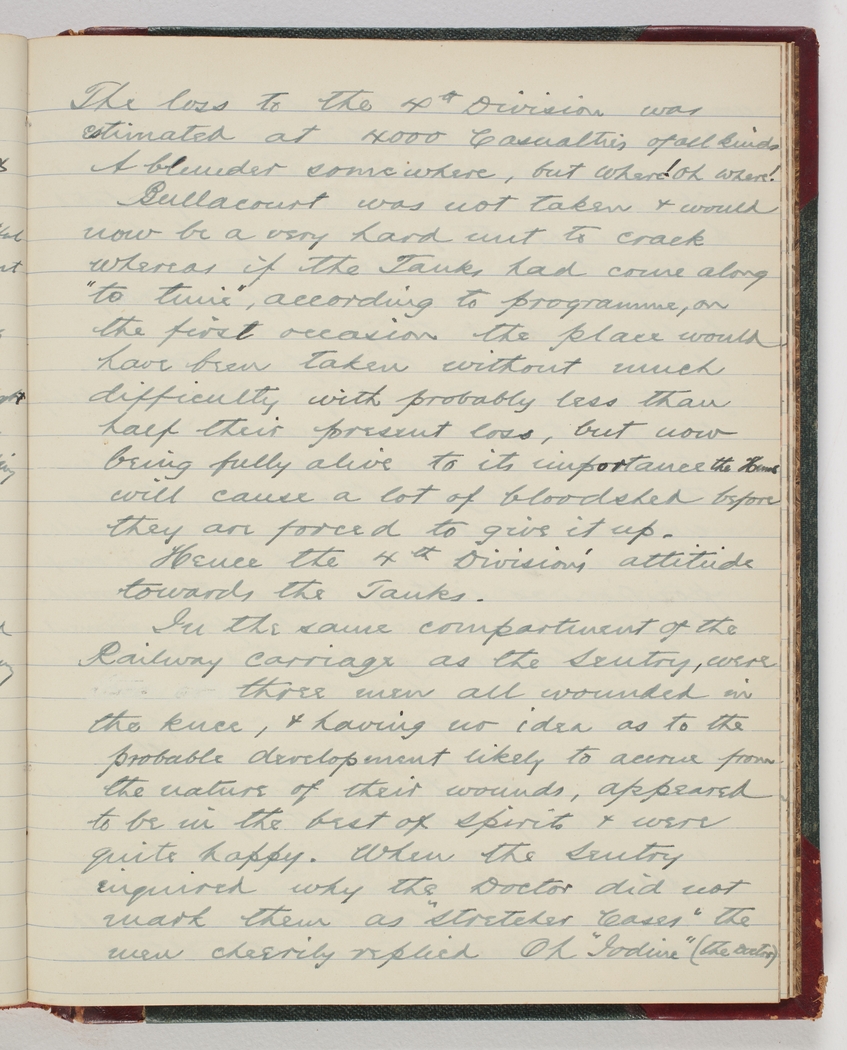 The loss to the 4th Division was
estimated at 4000 Casualties of all kinds
A blunder somewhere, but where! Oh where!
Bullacourt was not taken & would
now be a very hard nut to crack
whereas if the Tanks had come along
"to time", according to programme, on
the first occasion the place would
have been taken without much
difficulty with probably less than
half their present loss, but now
being fully alive to its importance the Huns
will cause a lot of bloodshed before
they are forced to give it up.
Hence the 4th Division's attitude
towards the Tanks.
In the same compartment of the
Railway carriage as the Sentry, were
three men all wounded in
the knee, & having no idea as to the
probable development likely to accrue from
the nature of their wounds, appeared
to be in the best of spirits & were
quite happy. When the Sentry
inquired why the Doctor did not
mark them as "Stretcher Cases" the
men cheerily replied Oh "Iodine" (the doctor)